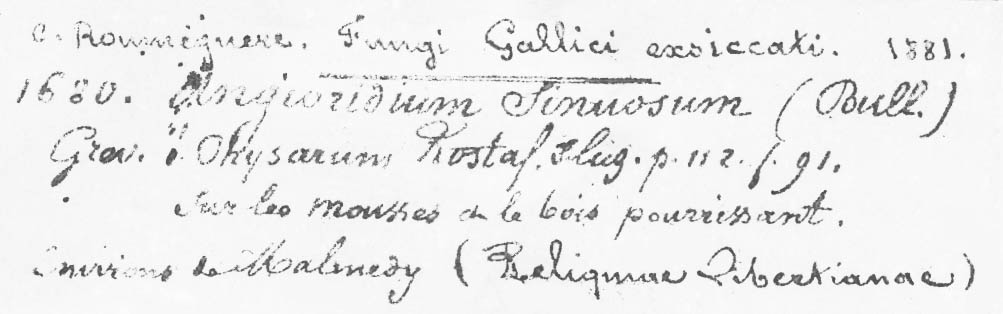 C. Roumeguere. Fungi Gallici exsiccati. 1881.
1680. Angioridium Sinuosum (Bull.)
Grev. Physarum Rostaf. p. 112. f. 91.
Sur les mousses & le bois pourrissant.
Environs de Malmedy (Reliquiae Libertianae)